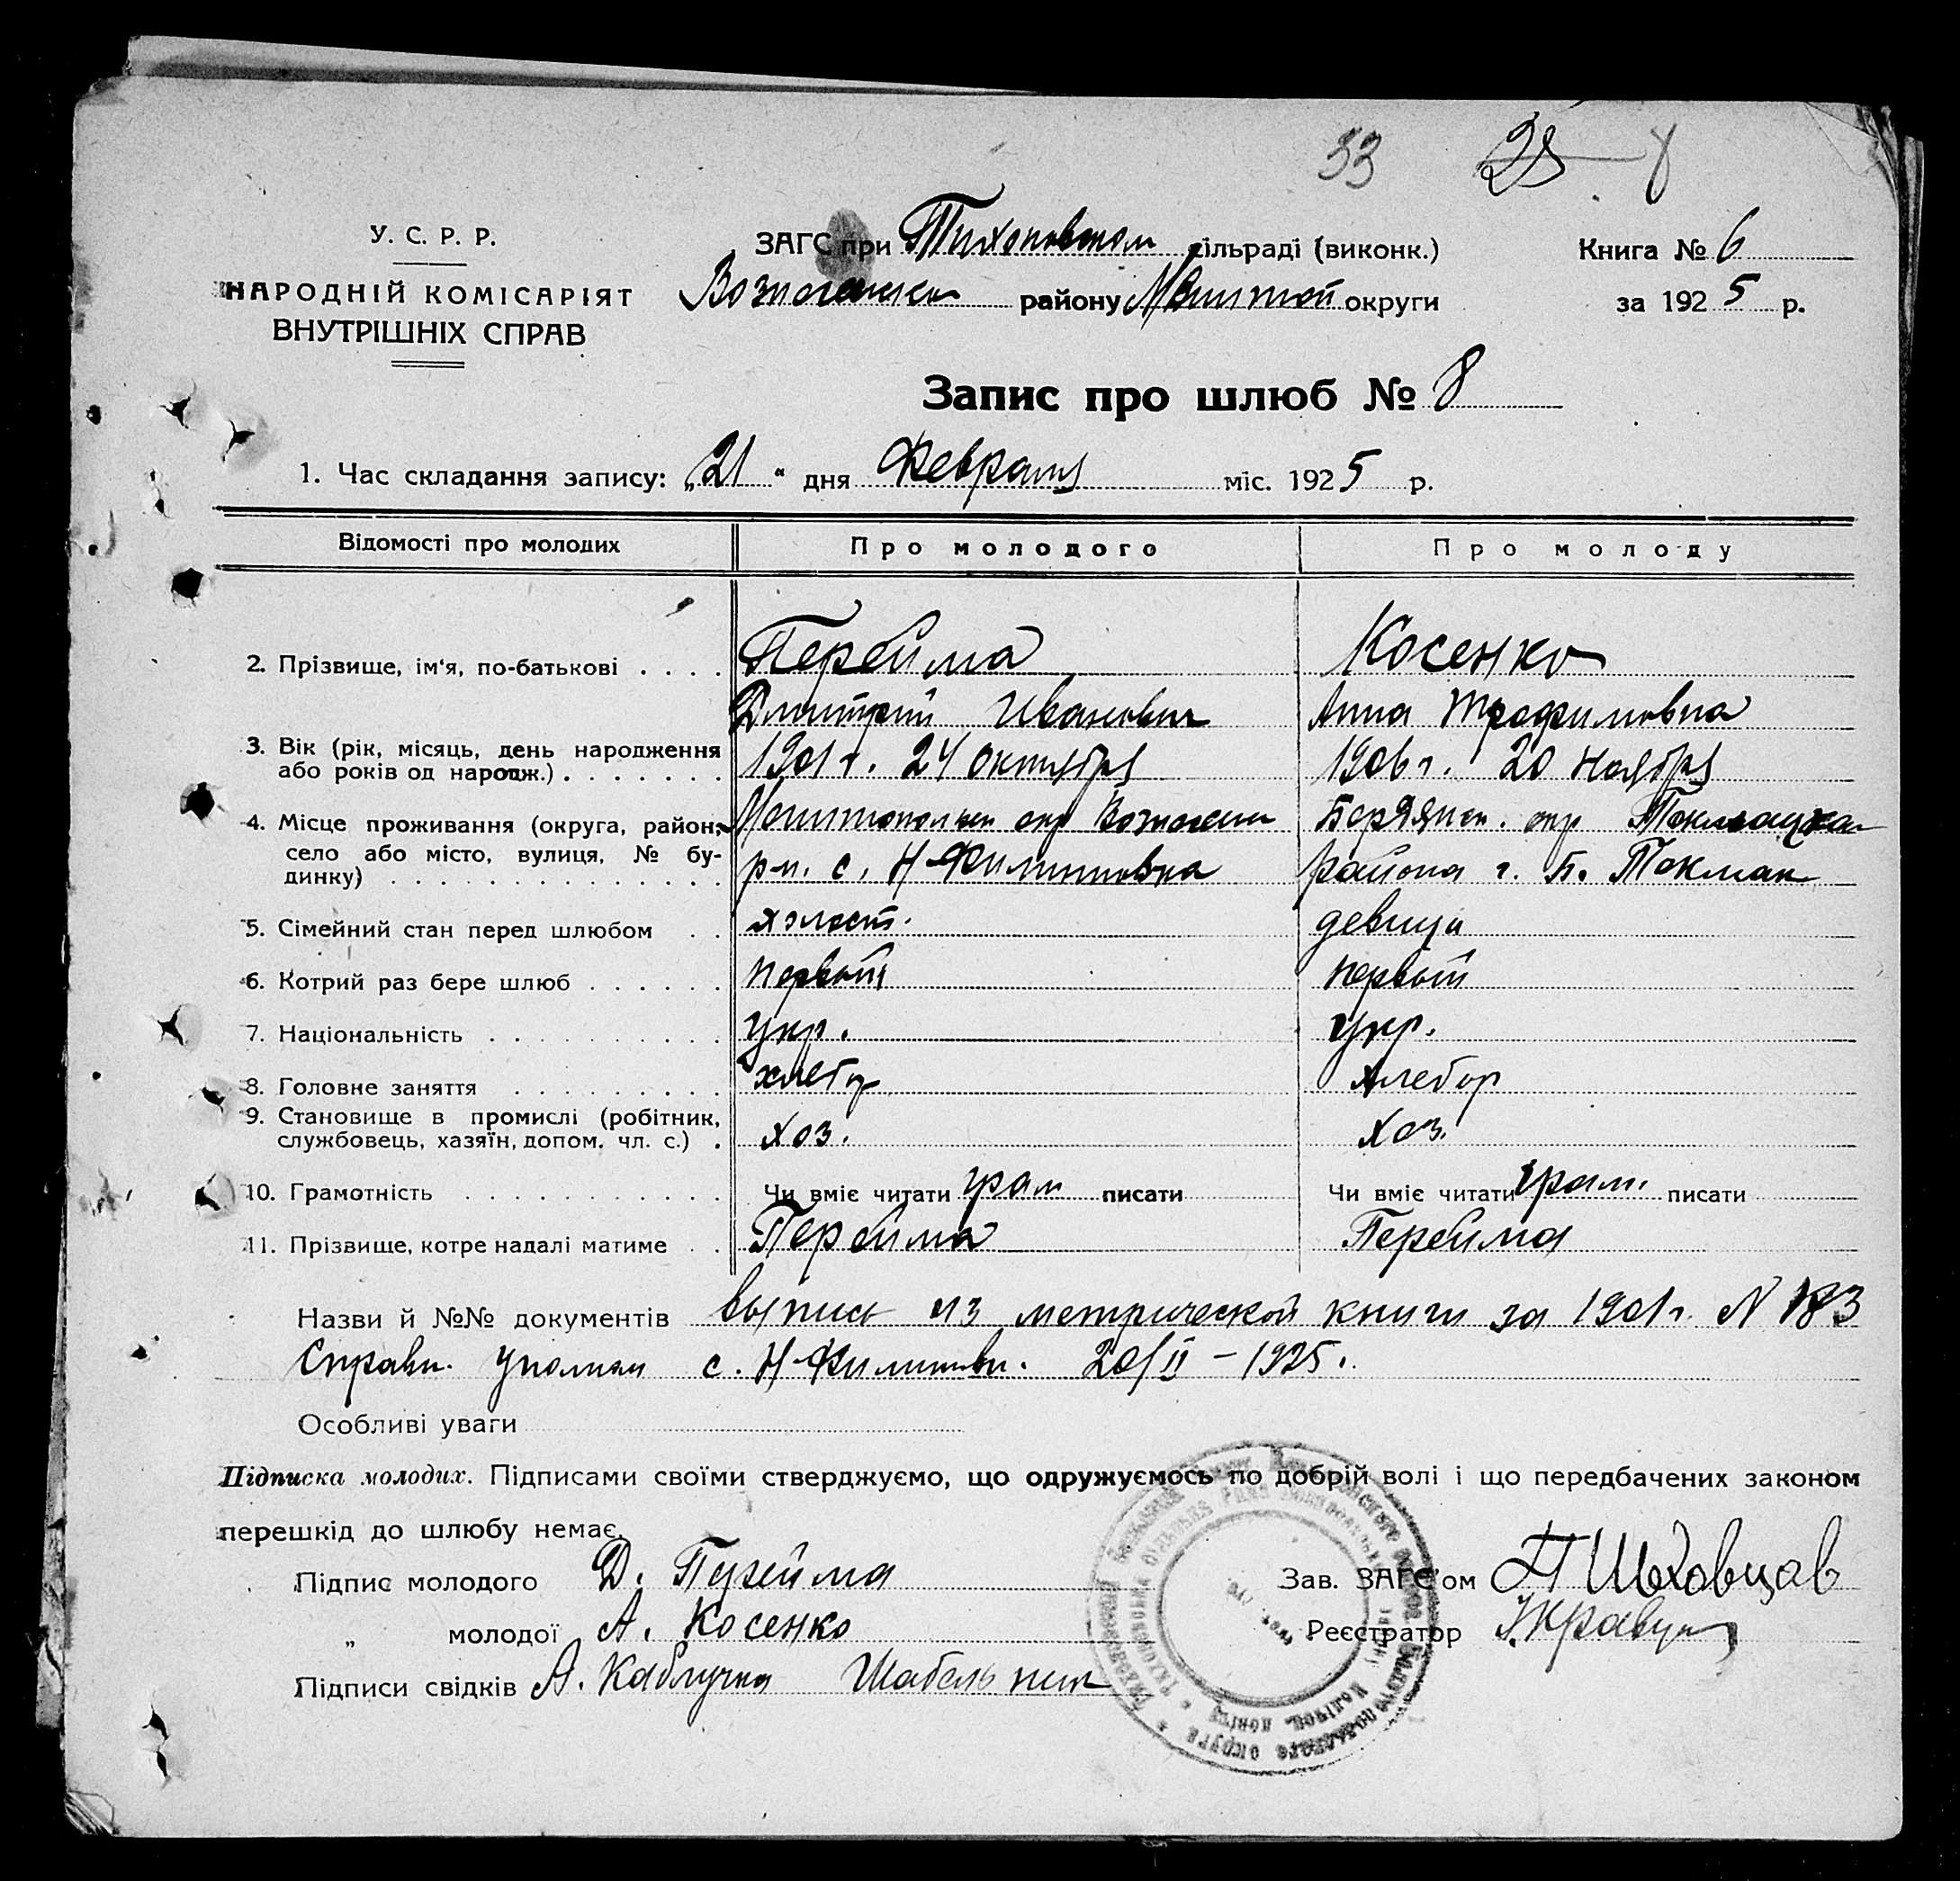 33 28 8
У. С. Р. Р.
НАРОДНІЙ КОМІСАРІЯТ
ВНУТРІШНІХ СПРАВ
ЗАГС при Тихоновском сільраді (виконк.)
района району Мелитопол округи
Книга № 6
за 1925 р.
Запис про шлюб № 8
1. Час складання запису: „21“ дня Февраля міс. 1925 р.
Відомості про молодих Про молодого Про молоду
2. Прізвище, ім'я, по-батькові . . . . Перейма Косенко
Дмитрий Иванович Анна Трофимовна
3. Вік (рік, місяць, день народження
або років од народж.) . . . . . . . 1901 г. 24 октября 1906 г. 20 Ноября
4. Місце проживання (округа, район,
село або місто, вулиця, № бу-
динку) . . . . . . . . . . . . . .
Мелитопольск окр Бердянск. окр
р-н. с. Н-Филипповка района г. Б. Токмак
5. Сімейний стан перед шлюбом . . холост. девица
6. Котрий раз бере шлюб . . . . . . первый первый
7. Національність . . . . . . . . . . укр. укр.
8. Головне заняття . . . . . . . . . хлебор хлебор
9. Становище в промислі (робітник,
службовець, хазяїн, допом. чл. с.) . хоз. хоз.
10. Грамотність . . . . . . . . . . . Чи вміє читати грам писати Чи вміє читати грам. писати
11. Прізвище, котре надалі матиме . . Перейма Перейма
Назви й №№ документів выпись из метрической книги за 1901 г. N 183
Справк. уполном с. Н-Филиповк. 20/II – 1925.
Особливі уваги
Підписка молодих. Підписами своїми стверджуємо, що одружуємось по добрій волі і що передбачених законом
перешкід до шлюбу немає.
Підпис молодого Д. Перейма
„ молодої А. Косенко
Підписи свідків А. Каблучка
Зав. ЗАГС'ом П Шеховцов
Реєстратор